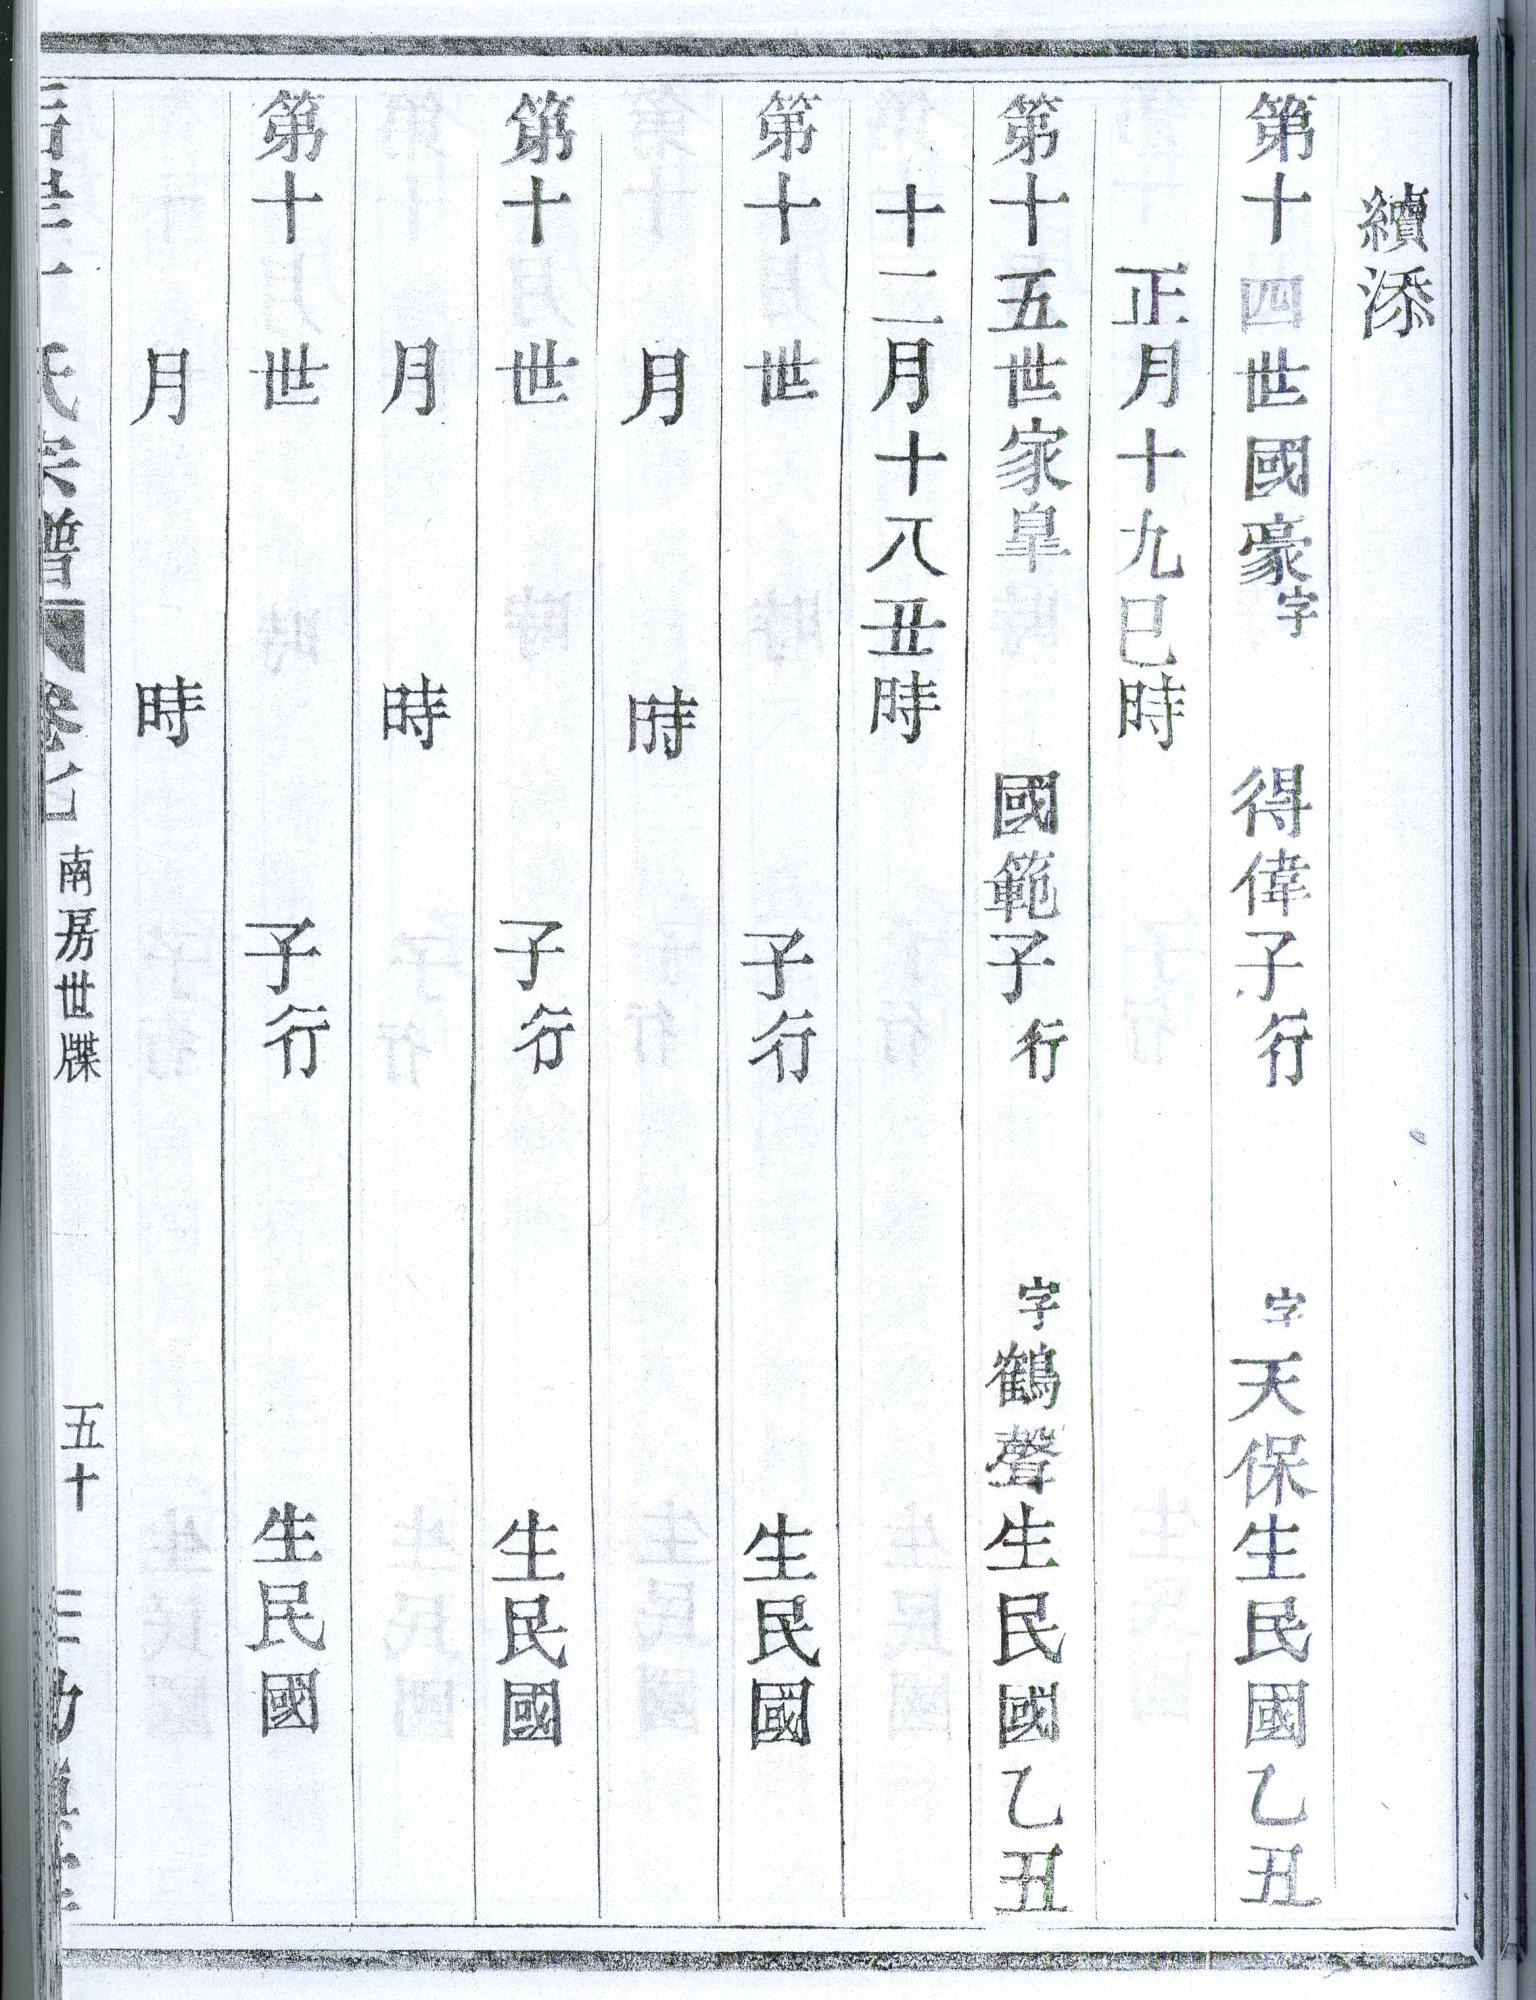 續添
第十四世國豪字 得偉子行 字天保生民國乙丑
正月十九巳時
第十五世家皐 國範子行 字鶴聲生民國乙丑
十二月十八丑時
第十 世 子行 生民國
月 時
第十 世 子行 生民國
月 時
第十 世 子行 生民國
月 時
氏宗譜 卷七 南房世牒 五十